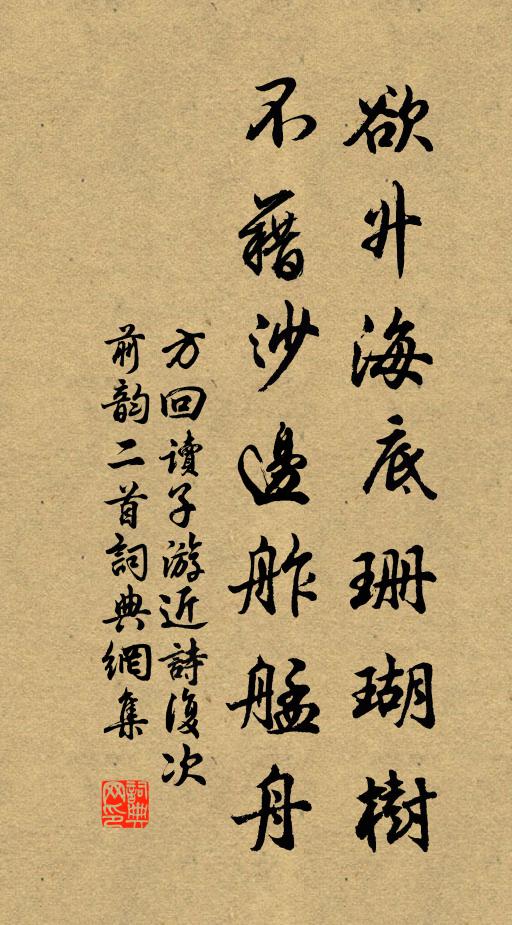 欲升海底珊瑚樹
不藉沙邊舴艋舟
方回讀子游近詩復次
前韵二首詞典網集
詞典
网印